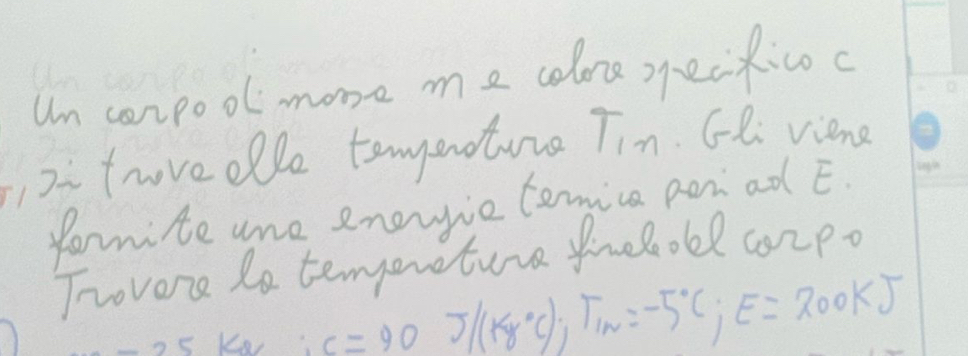 Un corpo di massa m e calore specifico c
si trova alla temperatura Tin. Gli viene
fornita una energia termica pari ad E.
Trovare la temperatura finale del corpo
= 25 Kg ; c = 90 J/(Kg°C); Tin = -5°C; E = 200KJ